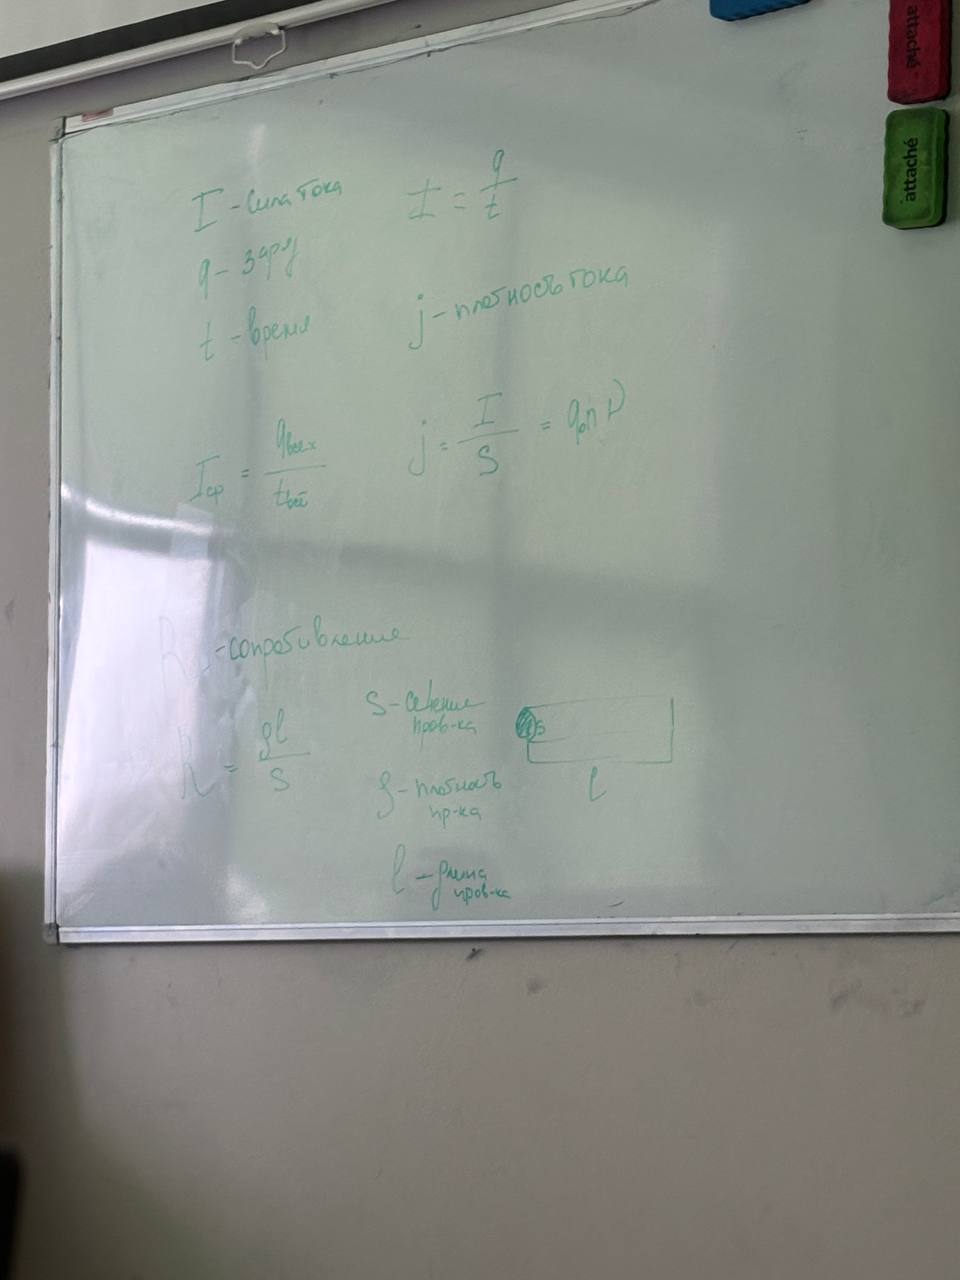 attaché
attaché
I - сила тока
I = q/t
q - заряд
t - время
j - плотность тока
Iср = qвсех/tвсё
j = I/S = q₀nν
R - сопротивление
R = ρl/S
S - сечение
пров-ка
S
l
ρ - плотность
пр-ка
l - длина
пров-ка